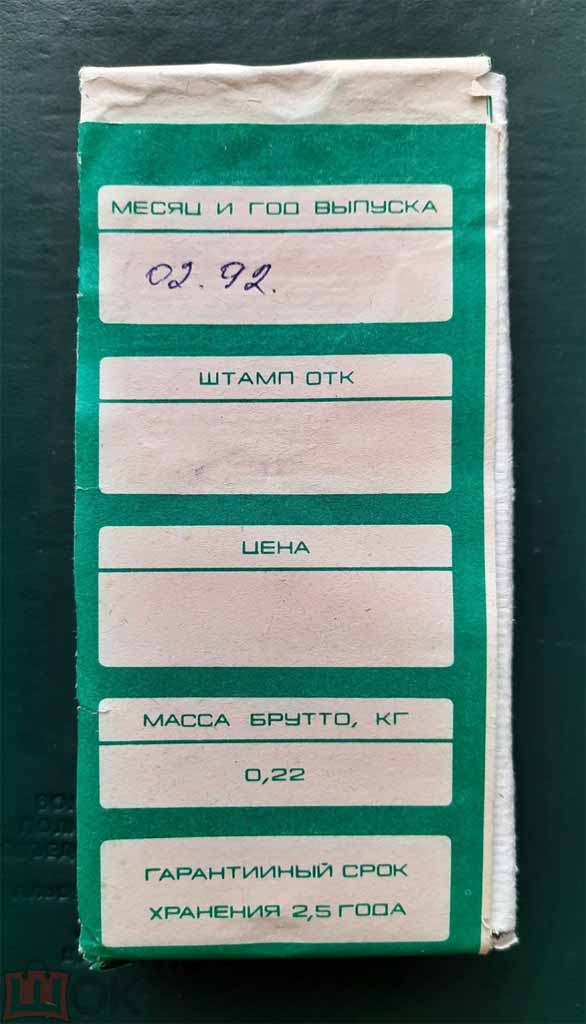 МЕСЯЦ И ГОД ВЫПУСКА
02. 92.
ШТАМП ОТК
ЦЕНА
МАССА БРУТТО, КГ
0,22
ГАРАНТИИНЫЙ СРОК
ХРАНЕНИЯ 2,5 ГОДА
ШОК